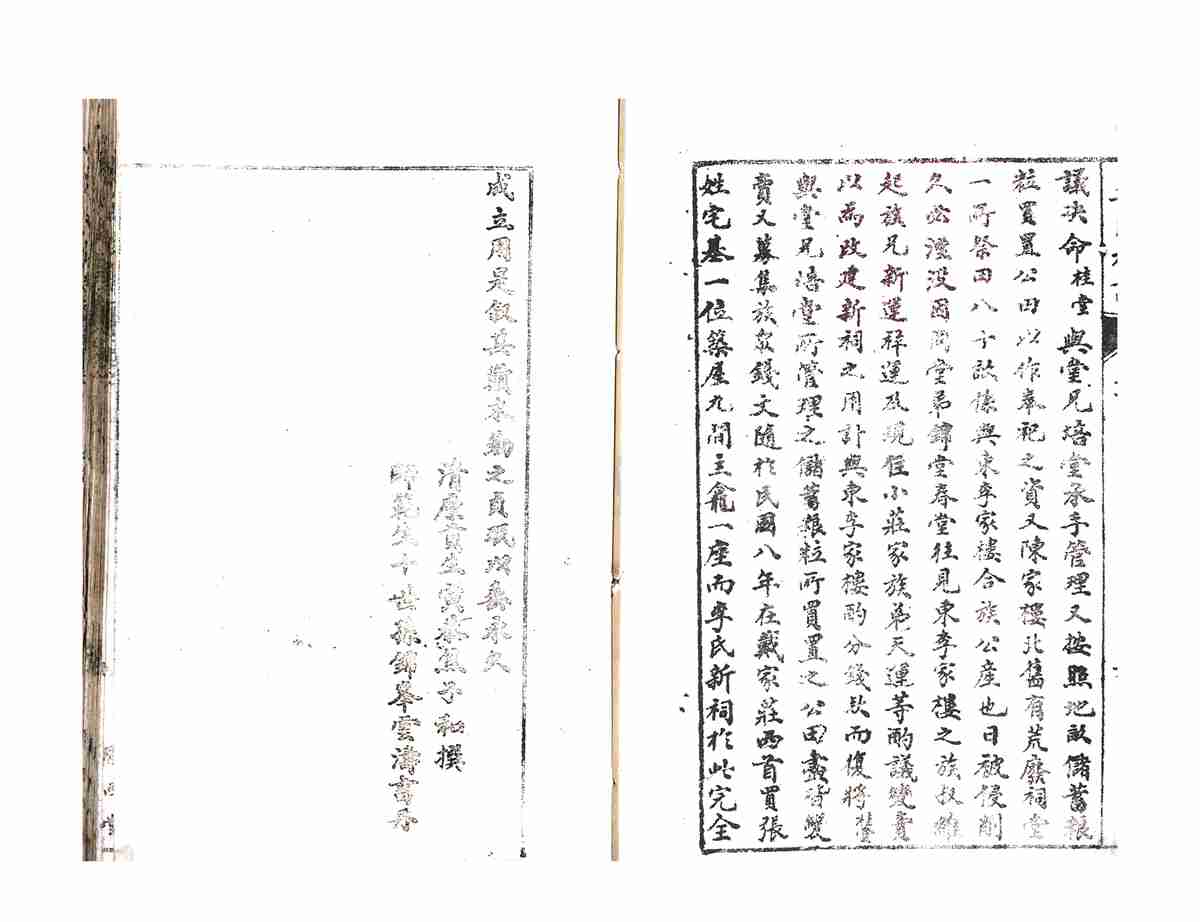 議決命桂堂與堂兄培堂承手管理又按照地畝儲蓄糧
粒買置公田以作奉祀之資又陳家樓北舊有荒廢祠堂
一所祭田八十畝係與東李家樓合族公產也日被侵削
久必湮没因同堂弟錦堂春堂往見東李家樓之族叔維
起族兄新運祥運及現住小莊家族弟天運等酌議變賣
以為改建新祠之用計與東李家樓酌分錢款而復將
與堂兄培堂所管理之儲蓄糧粒所買置之公田盡皆變
賣又募集族衆錢文隨於民國八年在戴家莊西首買張
姓宅基一位築屋九間主龕一座而李氏新祠於此完全
成立用是叙其顛末勒之貞珉以壽永久
清廪貢生寅恭 子和撰
師範生十世孫錦峯雲濤書丹